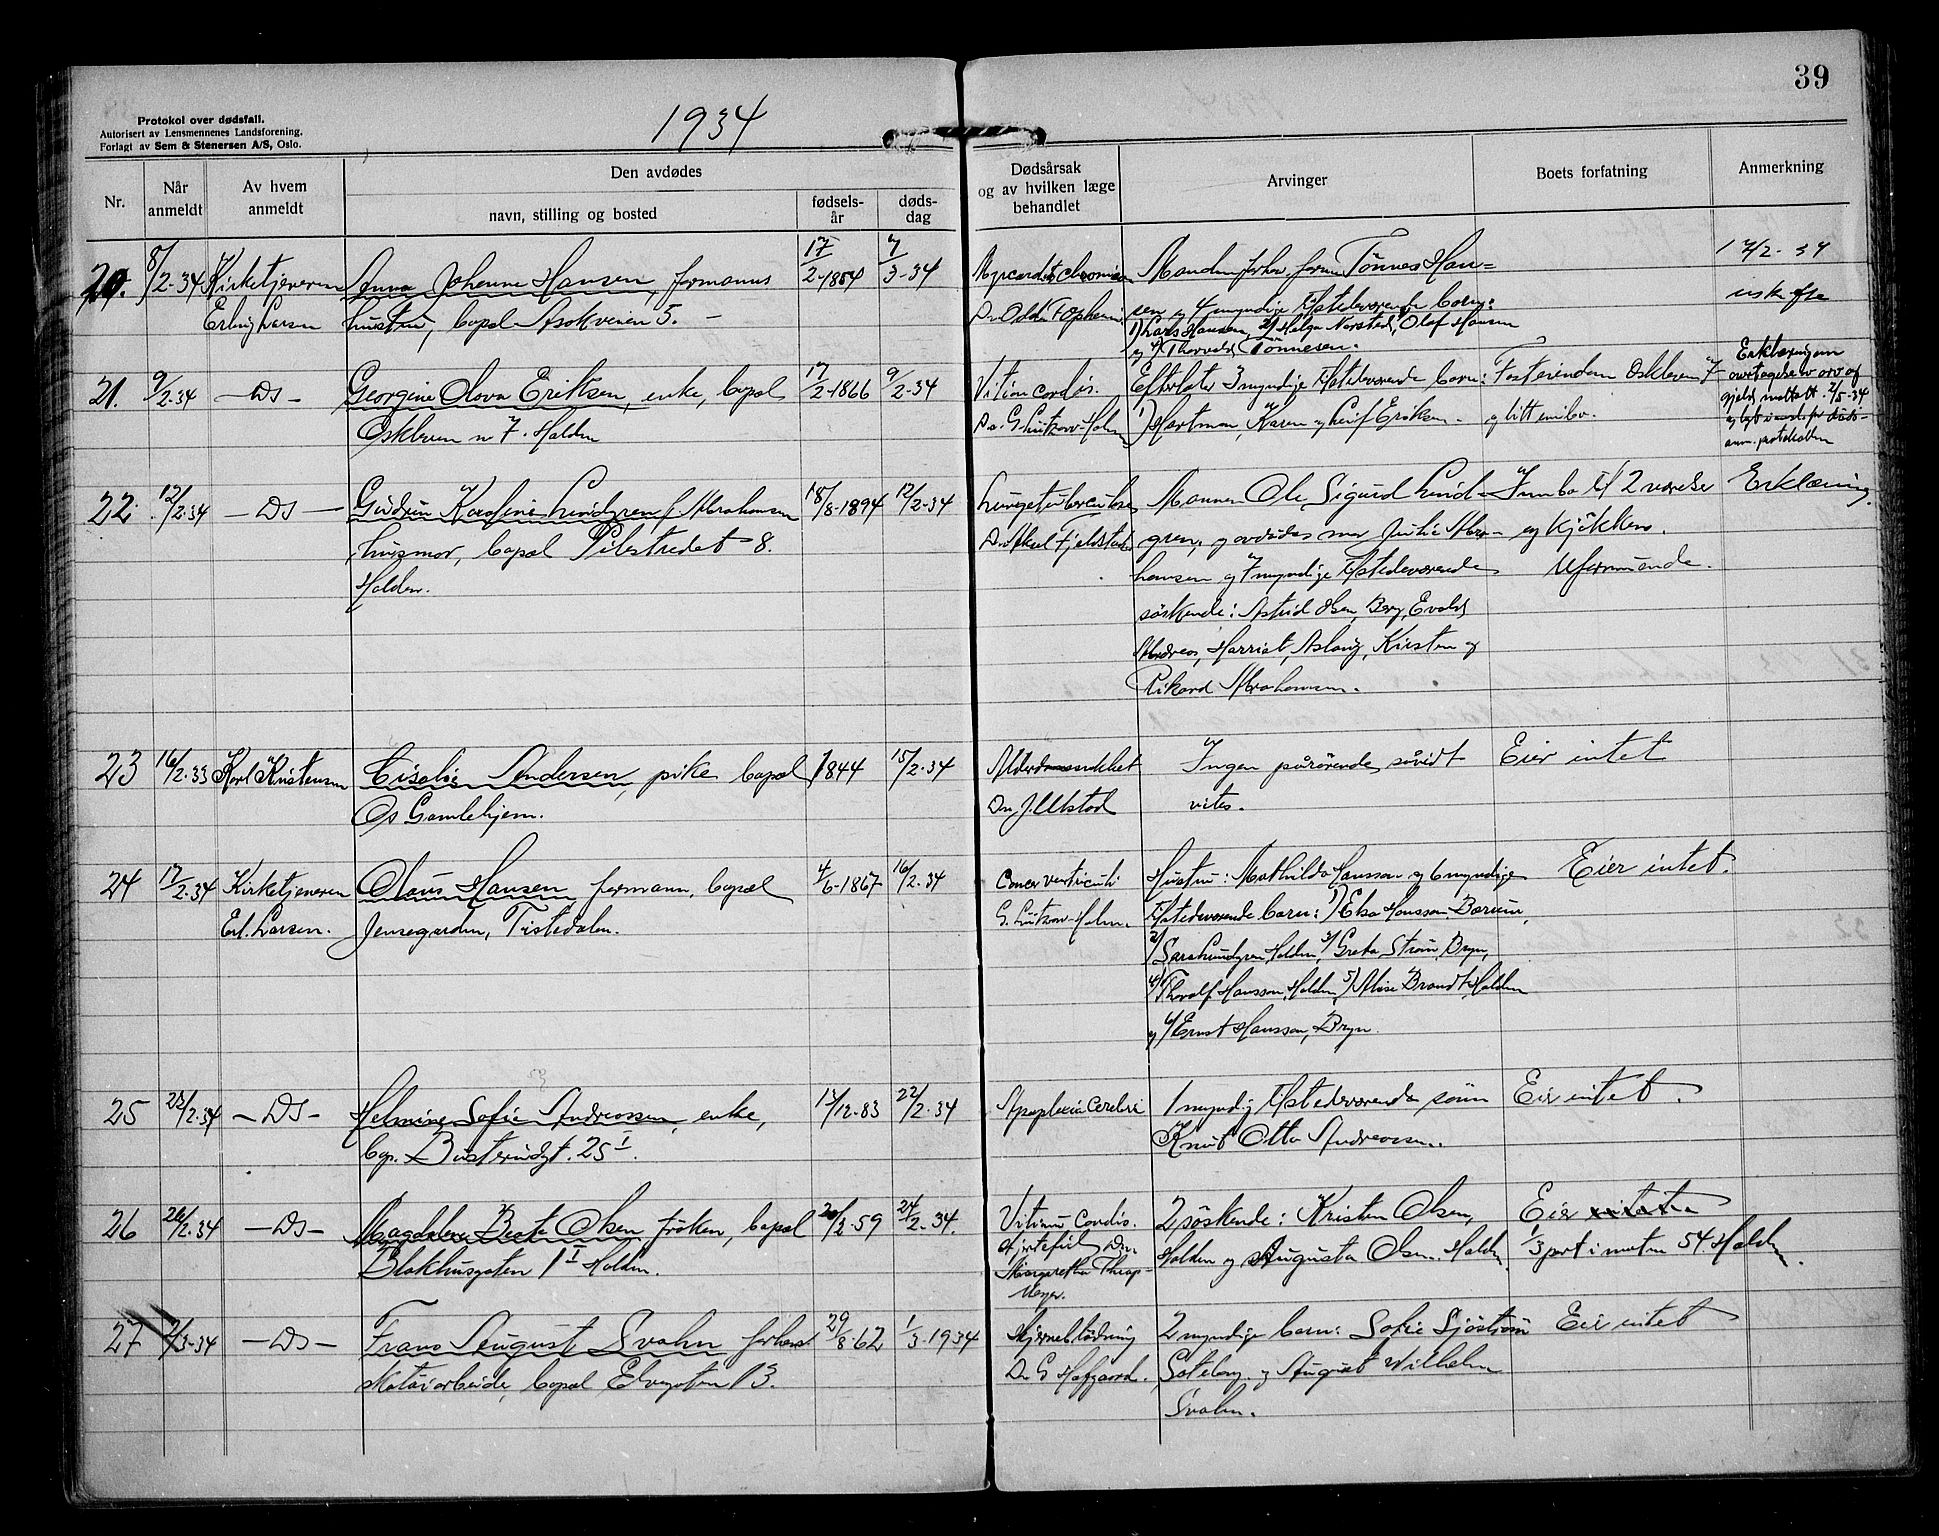 39
Protokol over dødsfall.
Autorisert av Lensmennenes Landsforening.
Forlagt av Sem & Stenersen A/S, Oslo.
1934
Nr.
Når anmeldt
Av hvem anmeldt
Den avdødes
navn, stilling og bosted
fødselsår
dødsdag
Dødsårsak og av hvilken læge behandlet
Arvinger
Boets forfatning
Anmerkning
20. 8/2-34 Kirketjeneren Anna Johanne Hansen, formanns 17/2-1854 7/3-34
Erling Larsen hustru, bopæl Asokveien 5. —
Tönnes Han=
sen og 4 myndige tilstedeværende barn:
1) Lars Hansen, 2) Helga Norsted, Olaf Hansen
og 4) Thorvald Tönnesen.
17/2-34
21. 9/2-34 — Ds — Georgine Olava Eriksen, enke, bopæl 17/2-1866 9/2-34
Oskleven n 7. Halden
Vitium cordis.
Dr. G. Lützow-Holm
Efterlater 3 myndige tilstedeværende barn:
1) Hartman, Karen og Leif Eriksen.
Oskleven 7
og litt innbo.
Erklæring om
overtagelse av arv og
gjeld mottatt 2/5-34
protokollen
22. 12/2-34 — Ds — Gudrun Karoline Lindgren f. Abrahamsen 18/8-1894 12/2-34
husmor, bopæl Pilestredet 8.
Halden.
Lungetuberkulose
Dr. Aksel Fjeldstad
Mannen Ole Sigurd Lind-
gren, og avdødes mor Julie Abra-
hamsen og 7 myndige tilstedeværende
søskende: Astrid Olsen, Berg, Evald,
Andreas, Harriet, Aslaug, Kirsten og
Rikard Abrahamsen.
Innbo til 2 værelser
og kjøkken.
Uformuende.
Erklæring.
23 16/2-33 Karl Kristensen Lisalie Andersen, pike, bopæl 1844 15/2-34
Os Gamlehjem.
Alderdomssvekket
Dr. J. Ulstad
Ingen pårørende såvidt
vites.
Eier intet
24 17/2-34 Kirketjeneren Olaus Hansen formann, bopæl 4/6-1867 16/2-34
Erl. Larsen. Jensegarden, Tistedalen.
Cancer ventriculi
G. Lützow-Holm.
Hustru: Mathilde Hansson og 6 myndige
tilstedeværende barn: 1) Elsa Hansson Bærum,
2) Sara Lundgren, Halden, 3) Greta Strøm, Bryn,
4) Thoralf Hansson, Halden, 5) Alise Brandt, Halden
og 6) Ernst Hansson, Bryn.
Eier intet.
25 23/2-34 — Ds — Helmine Sofie Andreassen, enke, 13/12-83 22/2-34
bop. Busterudgt. 25 I.
Apoplexia Cerebri
1 myndig tilstedeværende sønn
Knut Otto Andreassen.
Eier intet.
26 26/2-34 — Ds — Magdalene Beate Olsen, frøken, bopæl 20/2-59 24/2-34.
Blokhusgaten 1 I Halden.
Vitium Cordis.
Hjertefeil Dr.
Margaretha Thrap-
Meyer.
2 søskende: Kristen Olsen,
Halden og Augusta Olsen, Halden.
Eier intet.
1/3 part i matr. 54 Halden.
27 2/3-34 — Ds — Frans August Svahn forhenv. 29/8-62 1/3-1934
bopæl Elvegaten 13.
Hjerneblødning
Dr. G Hofgaard.
2 myndige barn: Sofie Sjöström
Göteborg og August Wilhelm
Svahn.
Eier intet